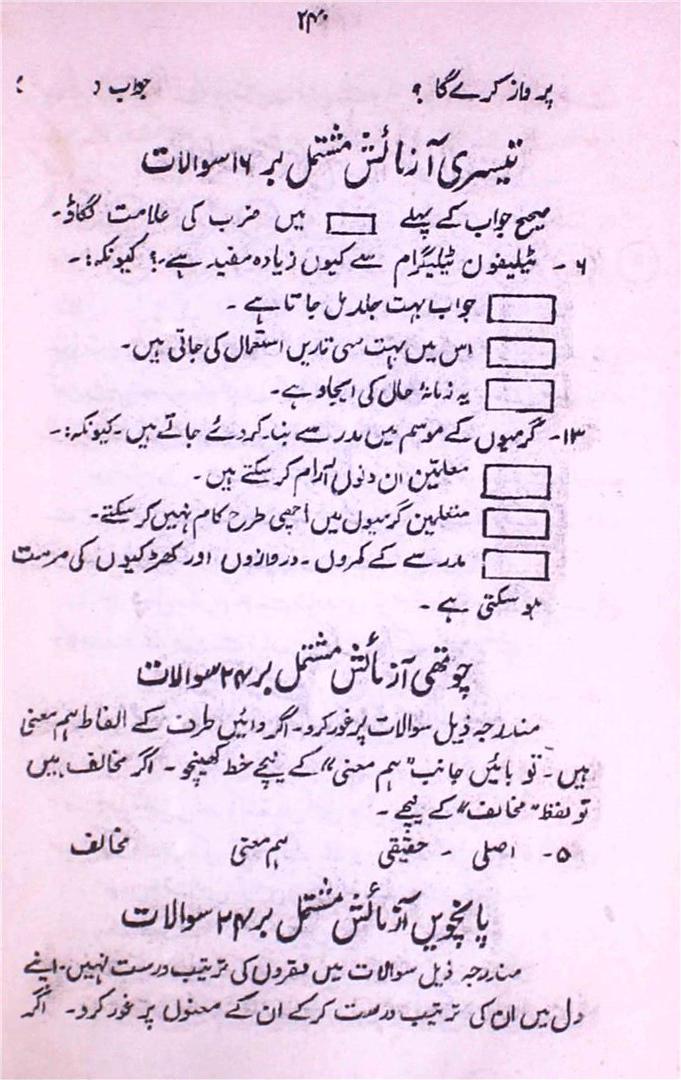 ۲۴۰
پرواز کرے گا ؟ جواب (
تیسری آزمائش مشتمل بر ۱۶ سوالات
صحیح جواب کے پہلے میں ضرب کی علامت لگاؤ۔
۶۔ ٹیلیفون ٹیلیگرام سے کیوں زیادہ مفید ہے؟ کیونکہ:۔
جواب بہت جلد مل جاتا ہے ۔
اس میں بہت سی تاریں استعمال کی جاتی ہیں۔
یہ زمانۂ حال کی ایجاد ہے۔
۱۳۔ گرمیوں کے موسم میں مدرسے بند کر دئے جاتے ہیں۔ کیونکہ:۔
معلمین ان دنوں آرام کر سکتے ہیں ۔
متعلمین گرمیوں میں اچھی طرح کام نہیں کر سکتے۔
مدرسے کے کمروں ۔ دروازوں اور کھڑکیوں کی مرمت
ہو سکتی ہے ۔
چوتھی آزمائش مشتمل بر ۲۴ سوالات
مندرجہ ذیل سوالات پر غور کرو۔ اگر دائیں طرف کے الفاظ ہم معنی
ہیں ۔ تو بائیں جانب "ہم معنی" کے نیچے خط کھینچو ۔ اگر مخالف ہیں
تو لفظ "مخالف" کے نیچے ۔
۵۔ اصلی ۔ حقیقی ہم معنی مخالف
پانچویں آزمائش مشتمل بر ۲۴ سوالات
مندرجہ ذیل سوالات میں فقروں کی ترتیب درست نہیں۔ اپنے
دل میں ان کی ترتیب درست کر کے ان کے معنوں پر غور کرو۔ اگر